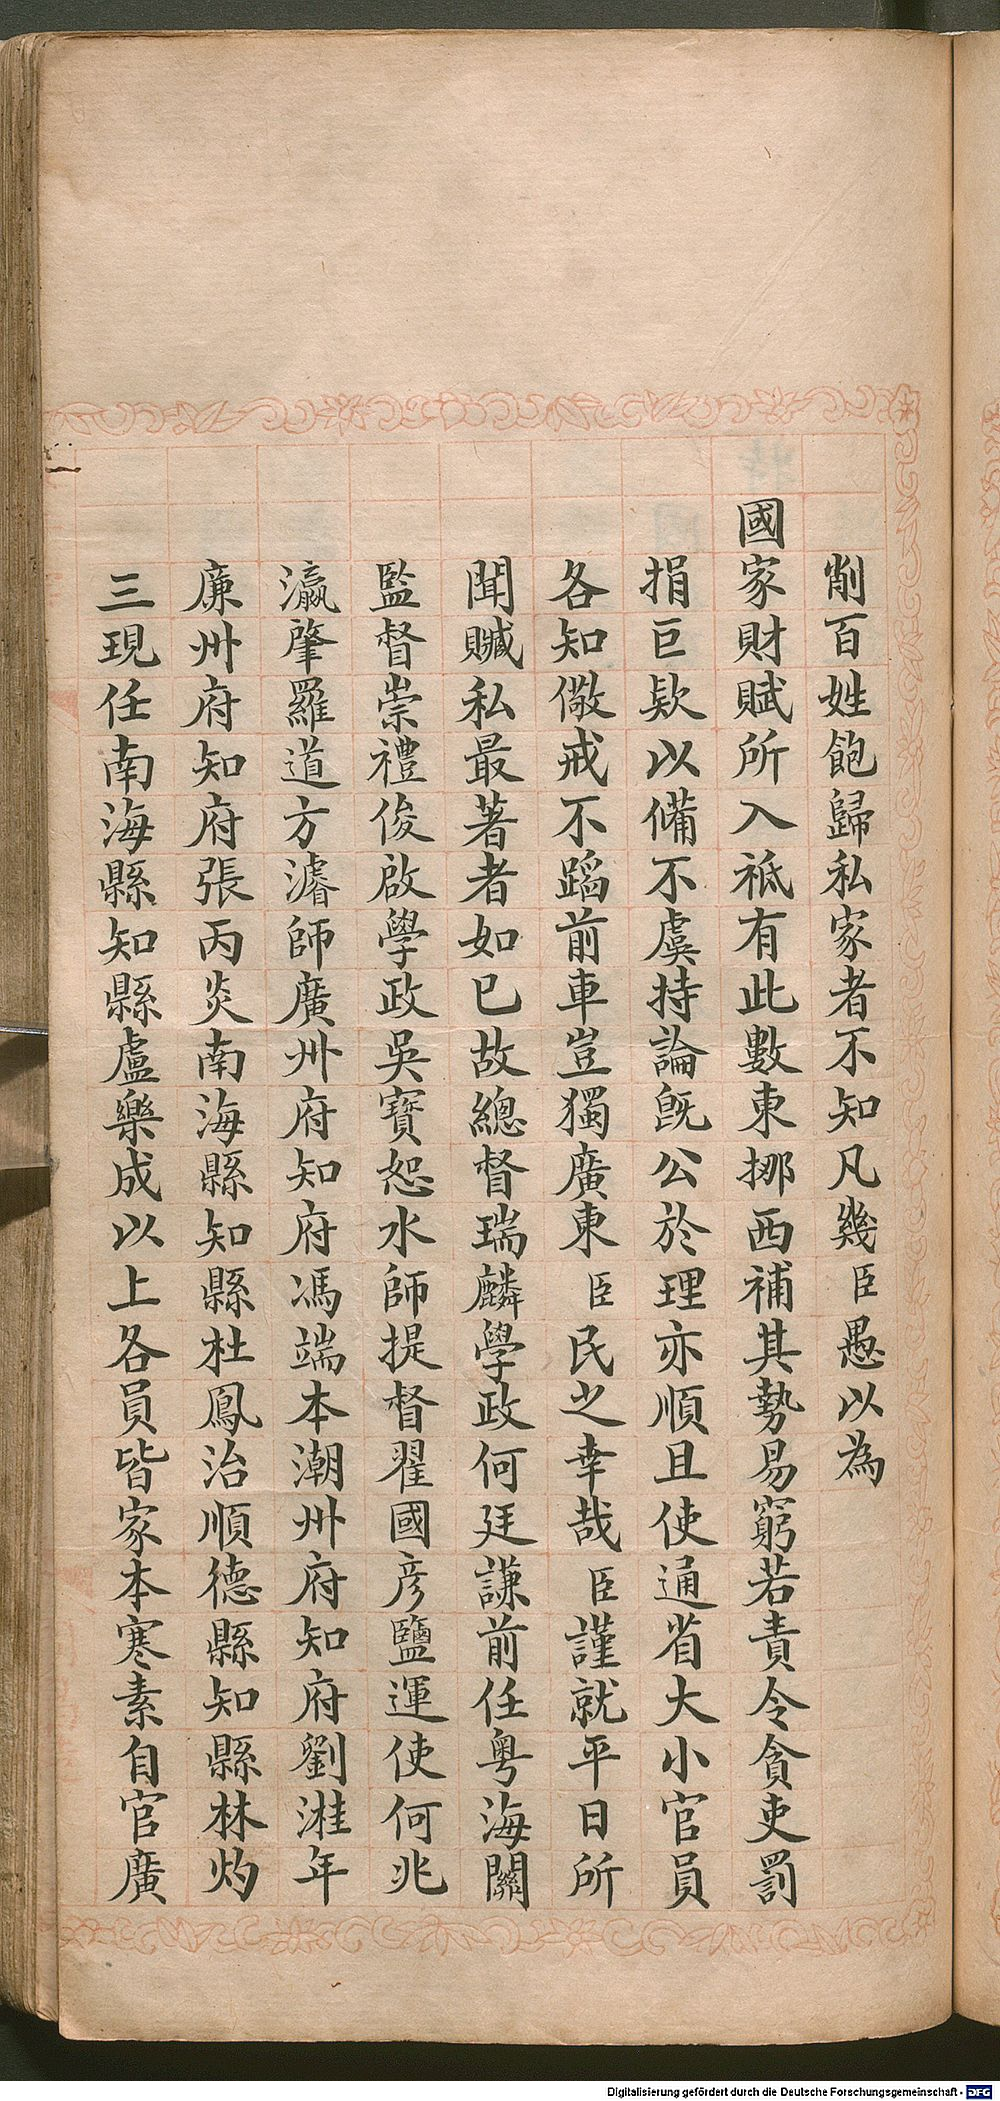 削百姓飽歸私家者不知凡幾臣愚以為
國家財賦所入祗有此數東挪西補其勢易窮若責令貪吏罰
捐巨欵以備不虞持論既公於理亦順且使通省大小官員
各知儆戒不蹈前車豈獨廣東臣民之幸哉臣謹就平日所
聞贓私最著者如已故總督瑞麟學政何廷謙前任粵海關
監督崇禮俊啟學政吳寶恕水師提督翟國彥鹽運使何兆
瀛肇羅道方濬師廣州府知府馮端本潮州府知府劉溎年
廉州府知府張丙炎南海縣知縣杜鳳治順德縣知縣林灼
三現任南海縣知縣盧樂成以上各員皆家本寒素自官廣
Digitalisierung gefördert durch die Deutsche Forschungsgemeinschaft - DFG